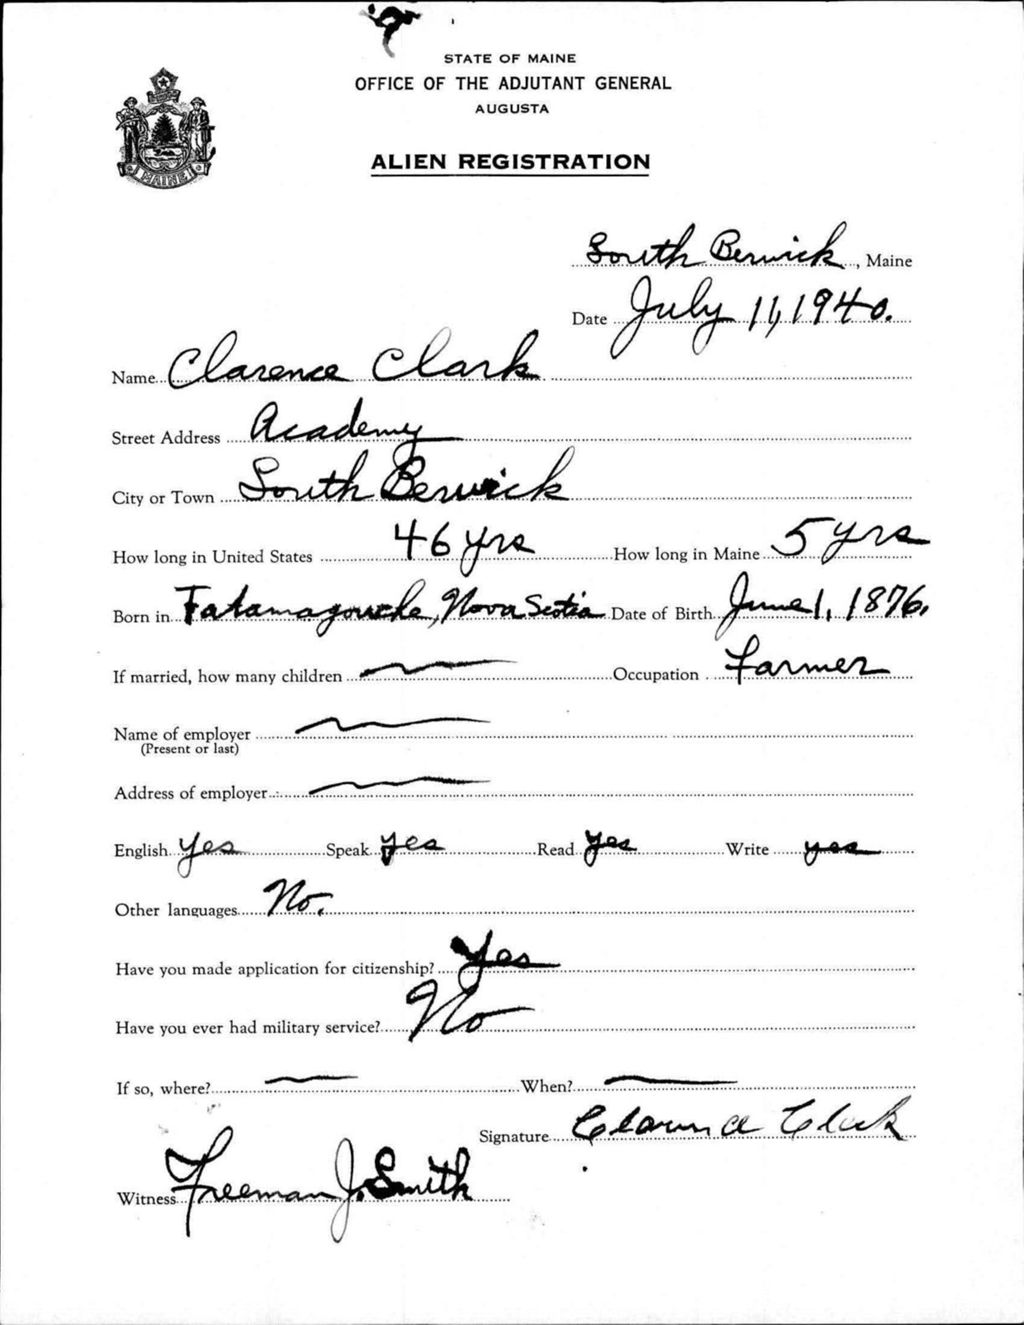 STATE OF MAINE
OFFICE OF THE ADJUTANT GENERAL
AUGUSTA
ALIEN REGISTRATION
South Berwick, Maine
Date July 11, 1940.
Name Clarence Clark
Street Address Academy
City or Town South Berwick
How long in United States 46 yrs How long in Maine 5 yrs
Born in Tatamagouche, Nova Scotia Date of Birth June 1, 1876.
If married, how many children Occupation Farmer
Name of employer
(Present or last)
Address of employer
English yes Speak yes Read yes Write yes
Other languages No.
Have you made application for citizenship? Yes
Have you ever had military service? No
If so, where? When?
Signature Clarence Clark
Witness Freeman J. Smith
MAINE